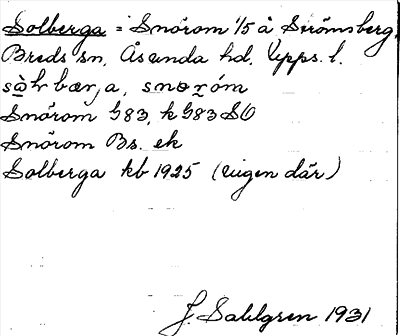 Solberga = Snörom 1/5 å Strömsberg,
Breds sn, Åsunda hd, Upps. l.
Snörom G83, k G83 SO
Snörom Bs. ek
Solberga kb 1925 (ingen där)
J. Sahlgren 1931